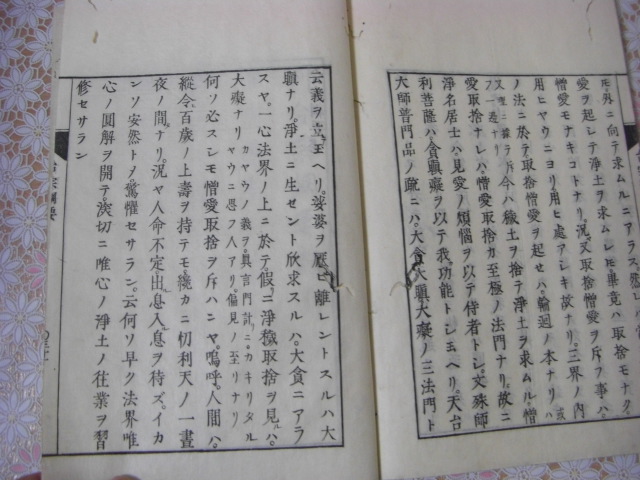 モ外ニ向テ求ムルニアラス
愛ヲ起シテ浄土ヲ求ムレモ畢竟ハ取捨モナク
憎愛モナキコトナリ。況又取捨憎愛ヲ斥フ事ハ。
用ヒヤウニヨリ用ヒ処アシキ故ナリ。三界ノ内
ノ法ニ於テ取捨憎愛ヲ起セハ。輪廻ノ本ナリ
今ハ穢土ヲ捨テ浄土ヲ求ムル。憎
愛取捨ナレハ。憎愛取捨カ至極ノ法門ナリ。故ニ
浄名居士ハ見愛ノ煩悩ヲ以テ侍者トシ。文殊師
利菩薩ハ貪瞋癡ヲ以テ我功能トシ玉ヘリ。天台
大師普門品ノ疏ニハ。大貪大瞋大癡ノ三法門ト
云義ヲ立玉ヘリ。娑婆ヲ厭ヒ離レントスルハ大
瞋ナリ。浄土ニ生セント欣求スルハ。大貪ニアラ
スヤ。一心法界ノ上ニ於テ假ニ浄穢取捨ヲ見ルハ。
大癡ナリ カヤウノ義ヲ真言門計ニカキリタル ヤウニ思フ人アリ。偏見ノ至リナリ
何ソ必スシモ憎愛取捨ヲ斥ハンヤ。嗚呼。人間ハ。
縦令百歳ノ上壽ヲ持テモ。纔カニ忉利天ノ一晝
夜ノ間ナリ。況ヤ人命不定出息入息ヲ待ズ。イカ
ンソ安然トメ驚懼セサラン。云何ソ早ク法界唯
心ノ圓解ヲ開テ。深切ニ唯心ノ浄土ノ往業ヲ習
修セサラン